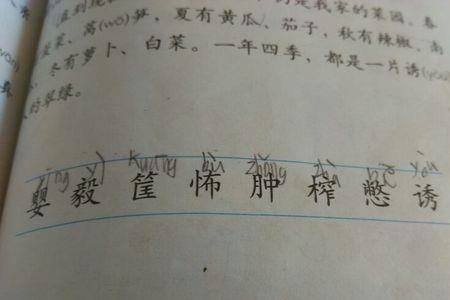 是我家的菜园。春
莴(wō)笋，夏有黄瓜、茄子，秋有辣椒、南
、冬有萝卜、白菜。一年四季，都是一片诱(yòu)
的翠绿。
yīng yì kuāng bù zhǒng yòu
婴 毅 筐 怖 肿 榨 憋 诱